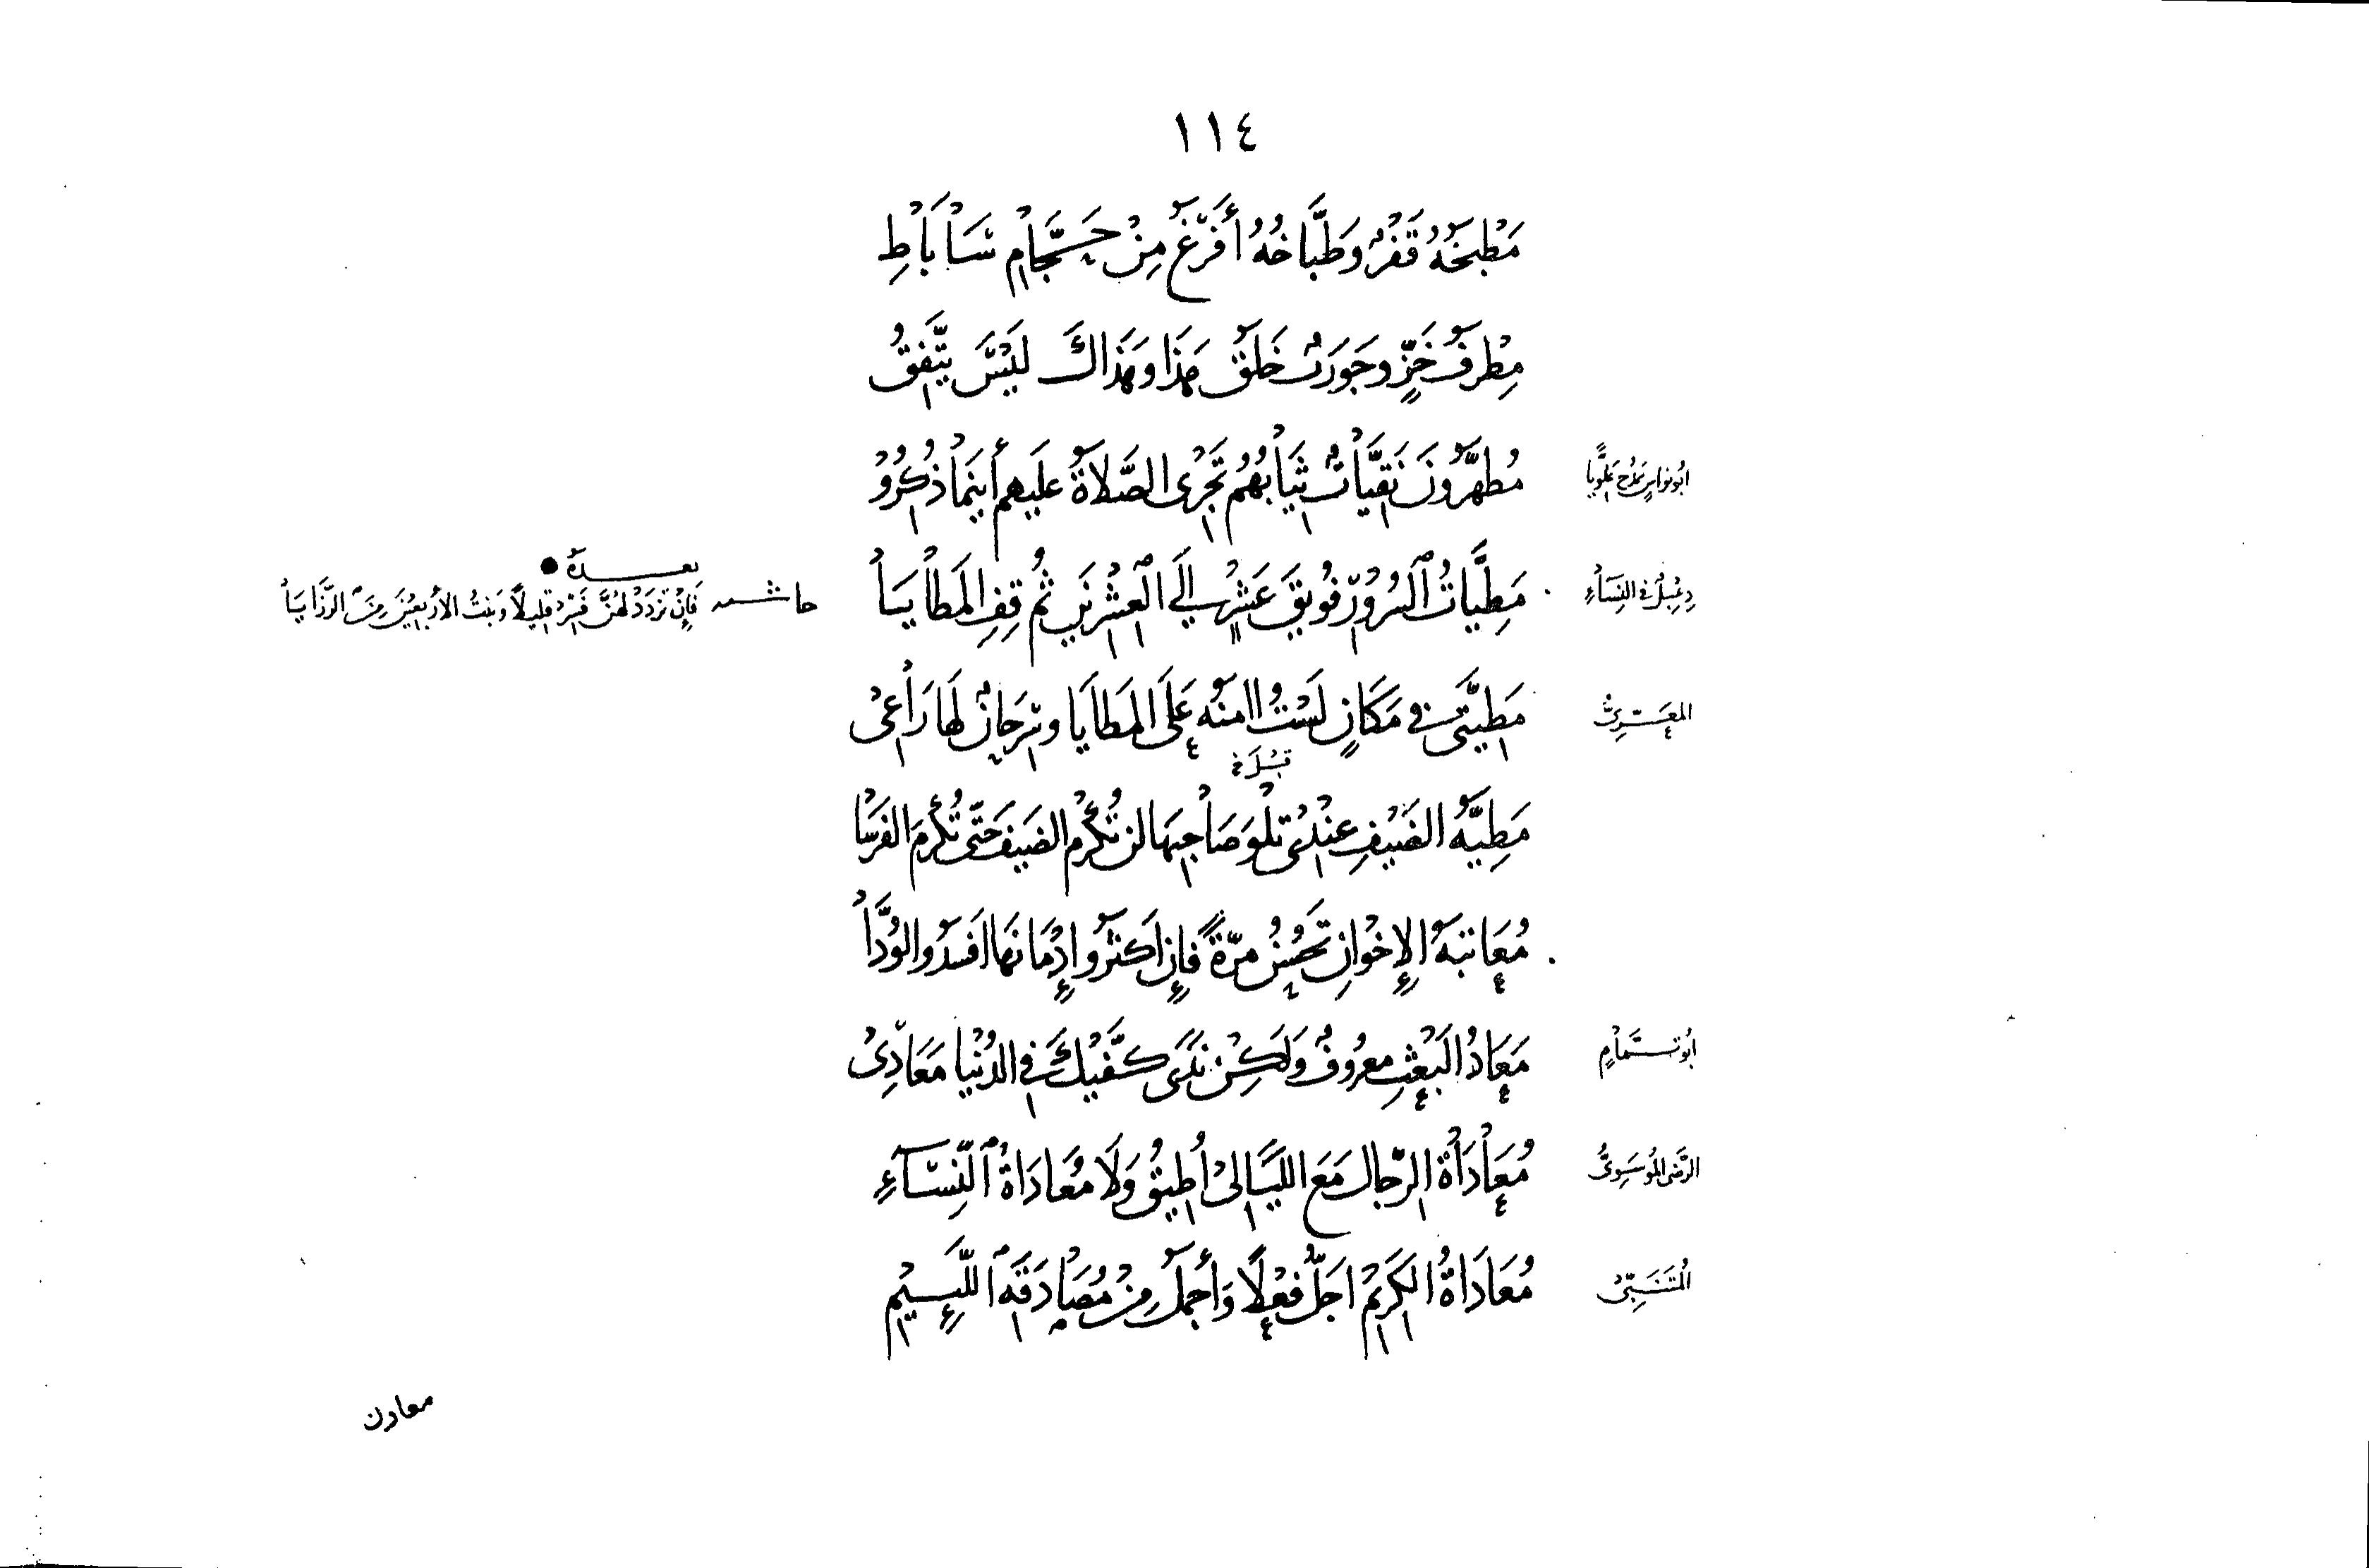 ١١٤
مَطْبَخُهُ قَفْرٌ وَطَبَّاخُهُ أَفْرَغُ مِنْ حَجَّامِ سَابَاطِ
مِطْرَفُ خَزٍّ وَجَوْرَبٌ خَلَقٌ هَذَا وَهَذَاكَ لَيْسَ يَتَّفِقُ
ابُو نواسٍ يَمْدَحُ عَلَوِيًّا
مُطَهَّرُونَ نَقِيَّاتٌ ثِيَابُهُمُ تَجْرِى الصَّلَاةُ عَلَيهِم أَينَمَا ذُكِرُوْ
دِعْبِلُ فى النِّسَاءِ
مَطِيَّاتُ السُّرُورِ فُوَيْقَ عَشْرٍ إِلَى الْعِشْرِيْنَ ثُمَّ قِفِ الْمَطَايَا
حاشـــية
بَعْـــدَهُ
فَإِنْ تَزْدَدْ لَهُنَّ فَزِدْ قَلِيلًا وَبِنْتُ الأَرْبَعِيْنَ مِنَ الرَّزَايَا
المَعَـــرِّىُّ
مَطِيَّتِى فِى مَكَانٍ لَسْتُ اامَنُهُ عَلَى الْمَطَايَا وَسِرْحَانٌ لَهَا رَاعِىْ
مَطِيَّةُ الضَّيْفِ عِنْدِىْ تِلْوَ صَاحِبِهَا لن تُكْرِمَ الضَيفَ حَتَّى تُكْرِمَ الفَرَسَا
مُعَاتَبَةُ الإِخْوَانِ تَحْسُنُ مرّةً فَإِن اَكثَرُوا إِدْمَانَهَا افسَدُوا الوُدَّا
ابُو تـــمَّامٍ
مَعَادُ الْبَعْثِ معرُوفٌ وَلَكِنْ نَدَى كَفَّيْكَ فِى الدُنْيَا مَعَادِىْ
الرَّضى المُوسَوِىُّ
مُعَادَاةُ الرِّجَالِ مَعَ اللَّيَالِىْ أُطِيقُ وَلَا مُعَادَاةُ النِّسَاءِ
المُتَنَبِّىْ
مُعَادَاةُ الكَرِيْمِ اجَلُّ فِعْلًا وَأَجمَلُ مِنْ مُصَادَقَةِ اللَّئِيْمِ
معادن